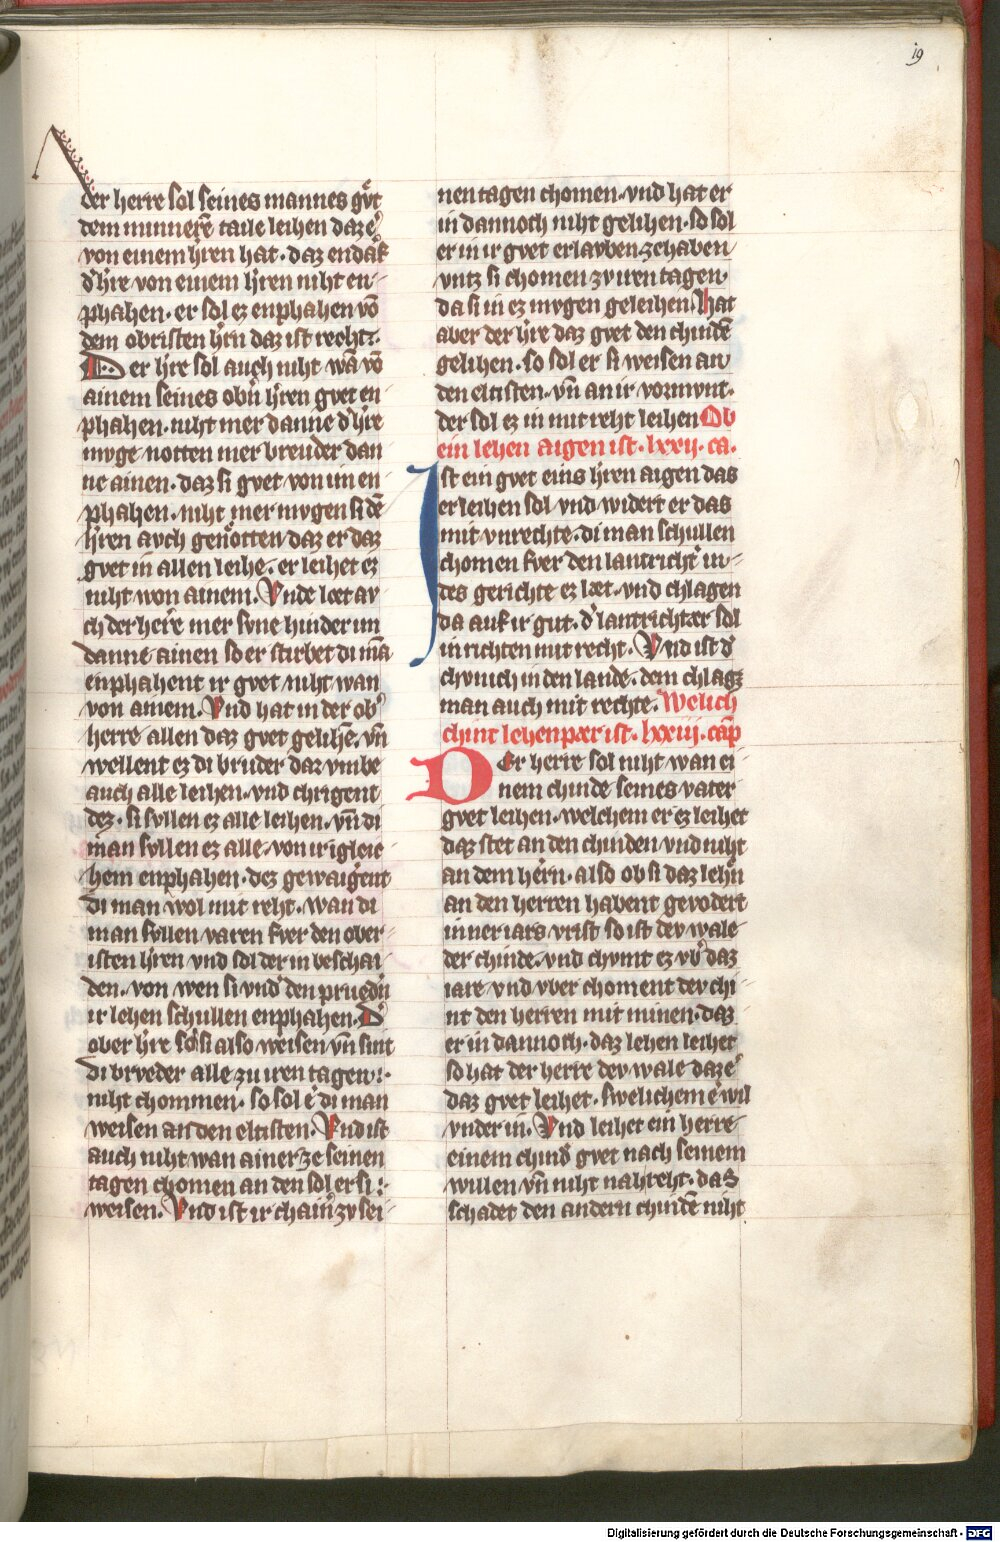 19
der herre sol seines mannes gůt
dem minnerē taile leihen daz eʼ
von einem hʼren hat · daz endarf
dʼ hʼre von einem hʼren niht en-
phahen · er sol ez enphahen vō
dem obristen hʼrn daz ist recht:·
Der hʼre sol auch niht wā vō
ainem seines obʼn hʼren gvet en
phahen · niht mer danne dʼ hʼre
mvge notten mer brvder dan
ne ainen · daz si gvet von im en
phahen · niht mer mvgen si dē
hʼren avch genötten daz er daz
gvet in allen leihe · er leihet ez
niht won ainem · Vnde læt av
ch der herre mer svne hinder im
danne ainen so er stirbet di mā
enphahent ir gvet niht wan
von ainem · Vnd hat in der obʼ
herre allen daz gvet gelihē · vn̄
wellent ez di bruder dar vmbe
auch alle leihen · vnd chrigent
dez · si svllen ez alle leihen · vn̄ di
man svllen ez alle · von ir igleie-
hem enphahen · dez gewaigent
di man wol mit reht · wan di
man svllen varen fver den ober-
isten hʼren vnd sol der in beschai-
den · von wen si vnd den pruedʼn
ir lehen schullen enphahen · Dʼ
ober hʼre sol si also weisen vn̄ sint
di brveder alle zu iren tagen:·
niht chommen · so sol eʼ di man
weisen an den eltisten · Vnd ist
auch niht wan ainer ze seinen
tagen chomen an den sol er si:·
weisen · Vnd ist ir chainʼ zv sei-
nen tagen chomen · vnd hat er
in dannoch niht gelihen · so sol
er in ir gvet erlavben ze haben
vntz si chomen zv iren tagen ·
da si in ez mvgen geleihen · hat
aber der hʼre daz gvet den chindē
gelihen · so sol er si weisen an
den eltisten · vn̄ an ir vormvnt ·
der sol ez in mit reht leihen Ob
ein lehen aigen ist · lxxij · ca ·
Ist ein gvet eins hʼren aigen das
er leihen sol vnd widert er das
mit vnrechte · di man schullen
chomen fver den lantrichtʼ in-
des gerichte ez læt · vnd chlagen
da auf ir gut · dʼ lantrichtær sol
in richten mit recht · Vnd ist dʼ
chvnich in den lande · dem chlagʼ
man auch mit rechte · Welich
chint lehenpær ist · lxxiij · cap̄
DEr herre sol niht wan ei-
nem chinde seines vater
gvet leihen · welchem er ez leihet
daz stet an den chinden vnd niht
an dem hern · also ob si daz lehʼn
an den herren habent gevodert
inner iars vrist so ist dev wale
der chinde · vnd chvmt ez vbʼ daz
iare · vnd vber choment dev chi-
nt den herren mit minen · daz
er in dannoch · daz lehen leihet
so hat der herre dev wale daz eʼ
daz gvet leihet · swelichem eʼ wil
vnder in · Vnd leihet ein herre
einem chindʼ gvet nach seinem
willen vn̄ niht nah reht · das
schadet den andern chindē niht
Digitalisierung gefördert durch die Deutsche Forschungsgemeinschaft - DFG